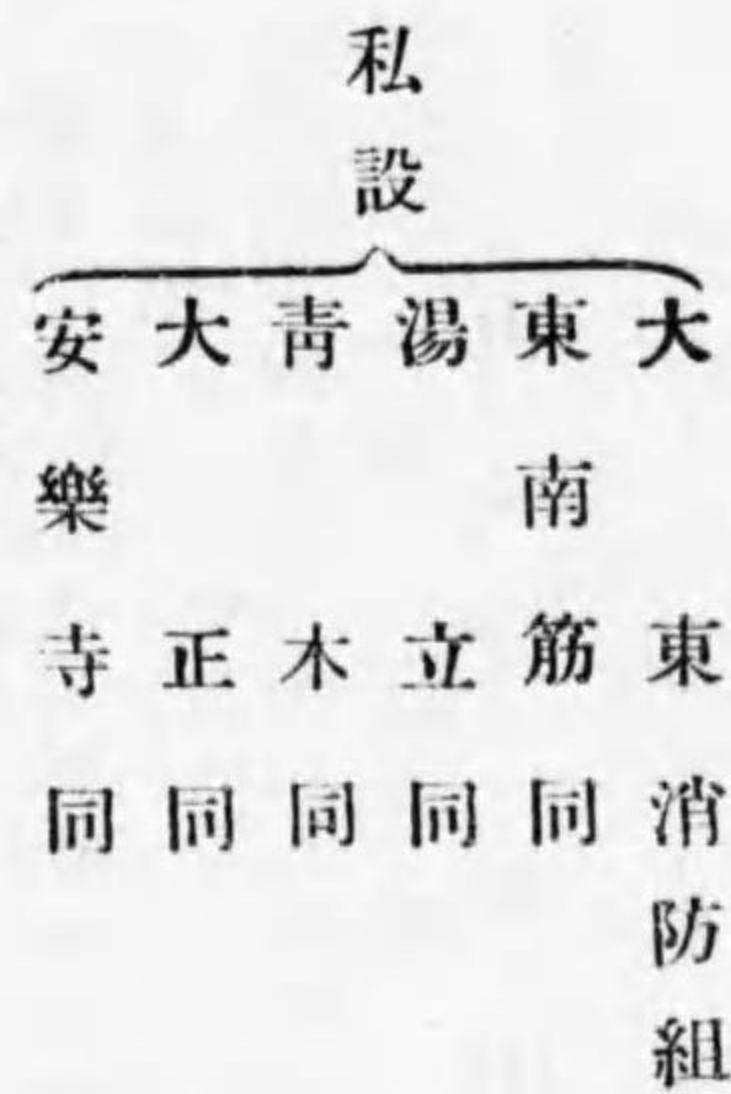 私設
大東消防組
東南筋同
湯立同
靑木同
大正同
安樂寺同